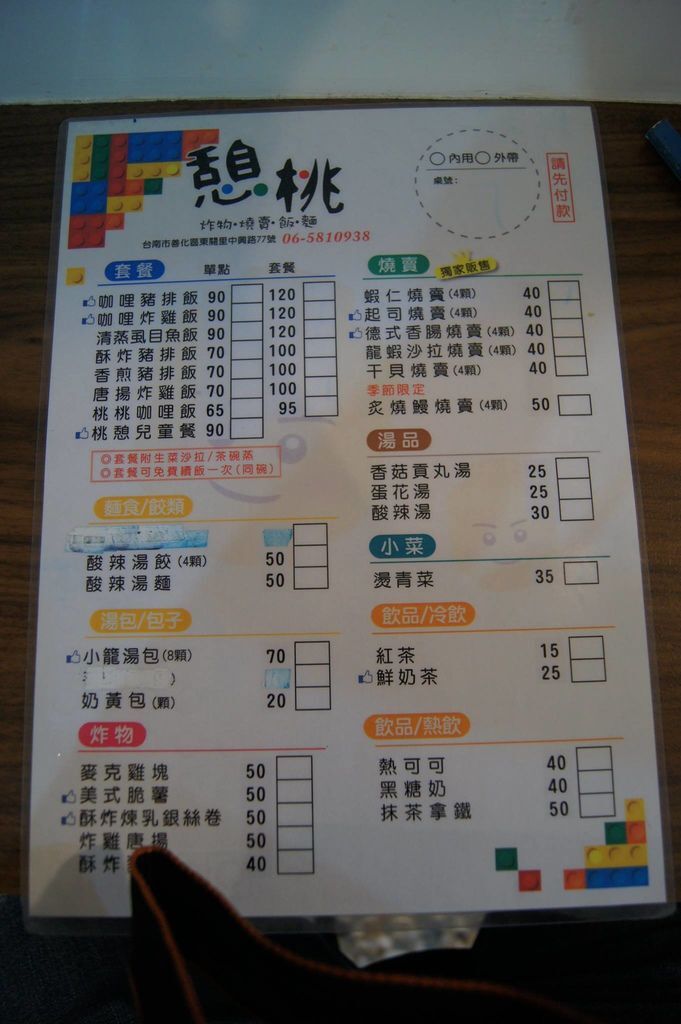 憩桃
炸物·燒賣·飯·麵
台南市善化區東關里中興路77號 06-5810938
內用 外帶
桌號：
請先付款
套餐 單點 套餐
咖哩豬排飯 90 120
咖哩炸雞飯 90 120
清蒸虱目魚飯 90 120
酥炸豬排飯 70 100
香煎豬排飯 70 100
唐揚炸雞飯 70 100
桃桃咖哩飯 65 95
桃憩兒童餐 90
◎套餐附生菜沙拉/茶碗蒸
◎套餐可免費續飯一次(同碗)
麵食/餃類
酸辣湯餃(4顆) 50
酸辣湯麵 50
湯包/包子
小籠湯包(8顆) 70
奶黃包(顆) 20
炸物
麥克雞塊 50
美式脆薯 50
酥炸煉乳銀絲卷 50
炸雞唐揚 50
酥炸 40
燒賣 獨家販售
蝦仁燒賣(4顆) 40
起司燒賣(4顆) 40
德式香腸燒賣(4顆) 40
龍蝦沙拉燒賣(4顆) 40
干貝燒賣(4顆) 40
季節限定
炙燒鰻燒賣(4顆) 50
湯品
香菇貢丸湯 25
蛋花湯 25
酸辣湯 30
小菜
燙青菜 35
飲品/冷飲
紅茶 15
鮮奶茶 25
飲品/熱飲
熱可可 40
黑糖奶 40
抹茶拿鐵 50